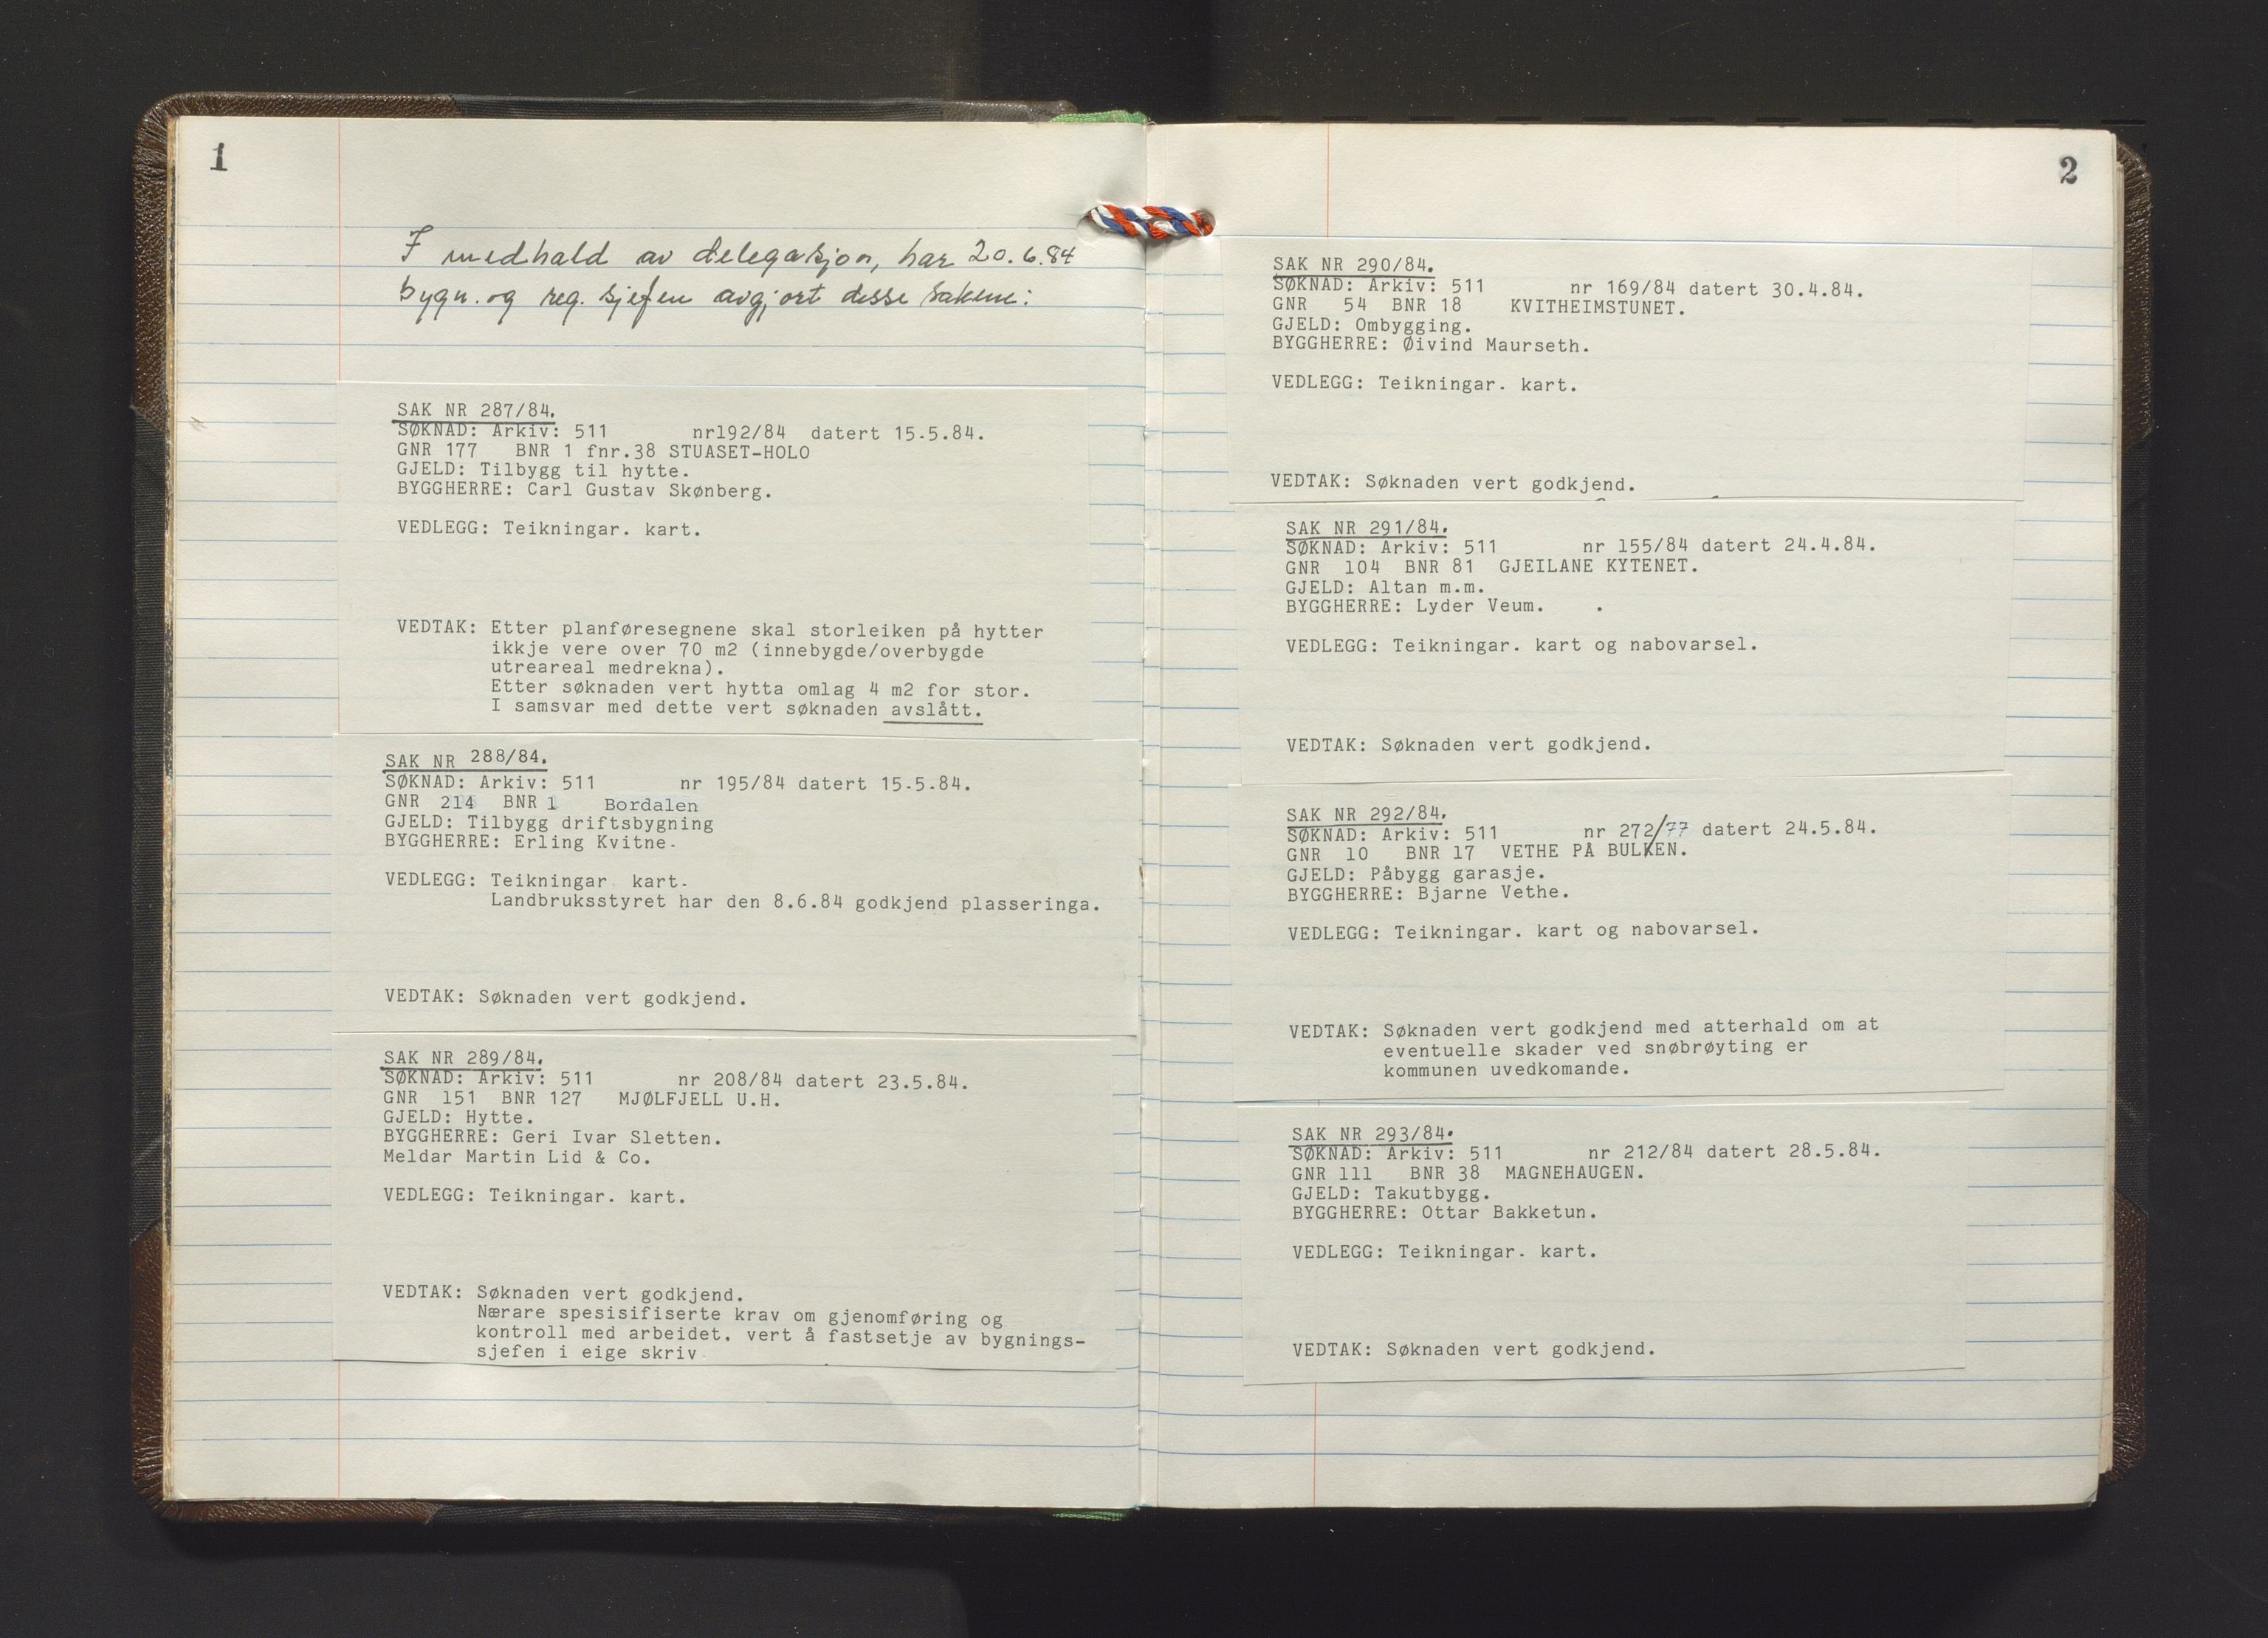 1
I medhald av delegasjon, har 20.6.84
bygn. og reg. sjefen avgjort desse sakene:
SAK NR 287/84.
SØKNAD: Arkiv: 511 nr192/84 datert 15.5.84.
GNR 177 BNR 1 fnr.38 STUASET-HOLO
GJELD: Tilbygg til hytte.
BYGGHERRE: Carl Gustav Skønberg.
VEDLEGG: Teikningar. kart.
VEDTAK: Etter planføresegnene skal storleiken på hytter
ikkje vere over 70 m2 (innebygde/overbygde
utreareal medrekna).
Etter søknaden vert hytta omlag 4 m2 for stor.
I samsvar med dette vert søknaden avslått.
SAK NR 288/84.
SØKNAD: Arkiv: 511 nr 195/84 datert 15.5.84.
GNR 214 BNR 1 Bordalen
GJELD: Tilbygg driftsbygning
BYGGHERRE: Erling Kvitne.
VEDLEGG: Teikningar kart.
Landbruksstyret har den 8.6.84 godkjend plasseringa.
VEDTAK: Søknaden vert godkjend.
SAK NR 289/84.
SØKNAD: Arkiv: 511 nr 208/84 datert 23.5.84.
GNR 151 BNR 127 MJØLFJELL U.H.
GJELD: Hytte.
BYGGHERRE: Geri Ivar Sletten.
Meldar Martin Lid & Co.
VEDLEGG: Teikningar. kart.
VEDTAK: Søknaden vert godkjend.
Nærare spesisifiserte krav om gjenomføring og
kontroll med arbeidet. vert å fastsetje av bygnings-
sjefen i eige skriv
2
SAK NR 290/84.
SØKNAD: Arkiv: 511 nr 169/84 datert 30.4.84.
GNR 54 BNR 18 KVITHEIMSTUNET.
GJELD: Ombygging.
BYGGHERRE: Øivind Maurseth.
VEDLEGG: Teikningar. kart.
VEDTAK: Søknaden vert godkjend.
SAK NR 291/84.
SØKNAD: Arkiv: 511 nr 155/84 datert 24.4.84.
GNR 104 BNR 81 GJEILANE KYTENET.
GJELD: Altan m.m.
BYGGHERRE: Lyder Veum. .
VEDLEGG: Teikningar. kart og nabovarsel.
VEDTAK: Søknaden vert godkjend.
SAK NR 292/84.
SØKNAD: Arkiv: 511 nr 272/77 datert 24.5.84.
GNR 10 BNR 17 VETHE PÅ BULKEN.
GJELD: Påbygg garasje.
BYGGHERRE: Bjarne Vethe.
VEDLEGG: Teikningar. kart og nabovarsel.
VEDTAK: Søknaden vert godkjend med atterhald om at
eventuelle skader ved snøbrøyting er
kommunen uvedkomande.
SAK NR 293/84.
SØKNAD: Arkiv: 511 nr 212/84 datert 28.5.84.
GNR 111 BNR 38 MAGNEHAUGEN.
GJELD: Takutbygg.
BYGGHERRE: Ottar Bakketun.
VEDLEGG: Teikningar. kart.
VEDTAK: Søknaden vert godkjend.